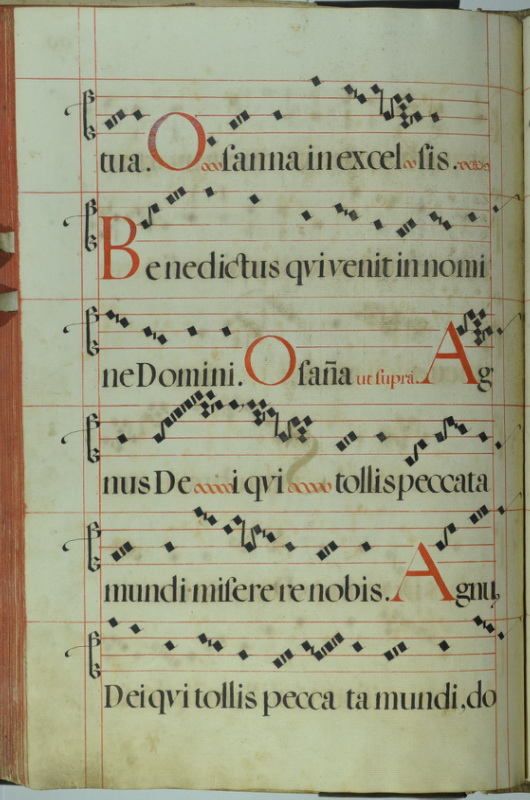 tua. Osanna in excelsis.
Benedictus qvi venit in nomi
ne Domini. Osaña ut supra. Ag
nus Dei qvi tollis peccata
mundi miserere nobis. Agnus
Dei qvi tollis pecca ta mundi, do